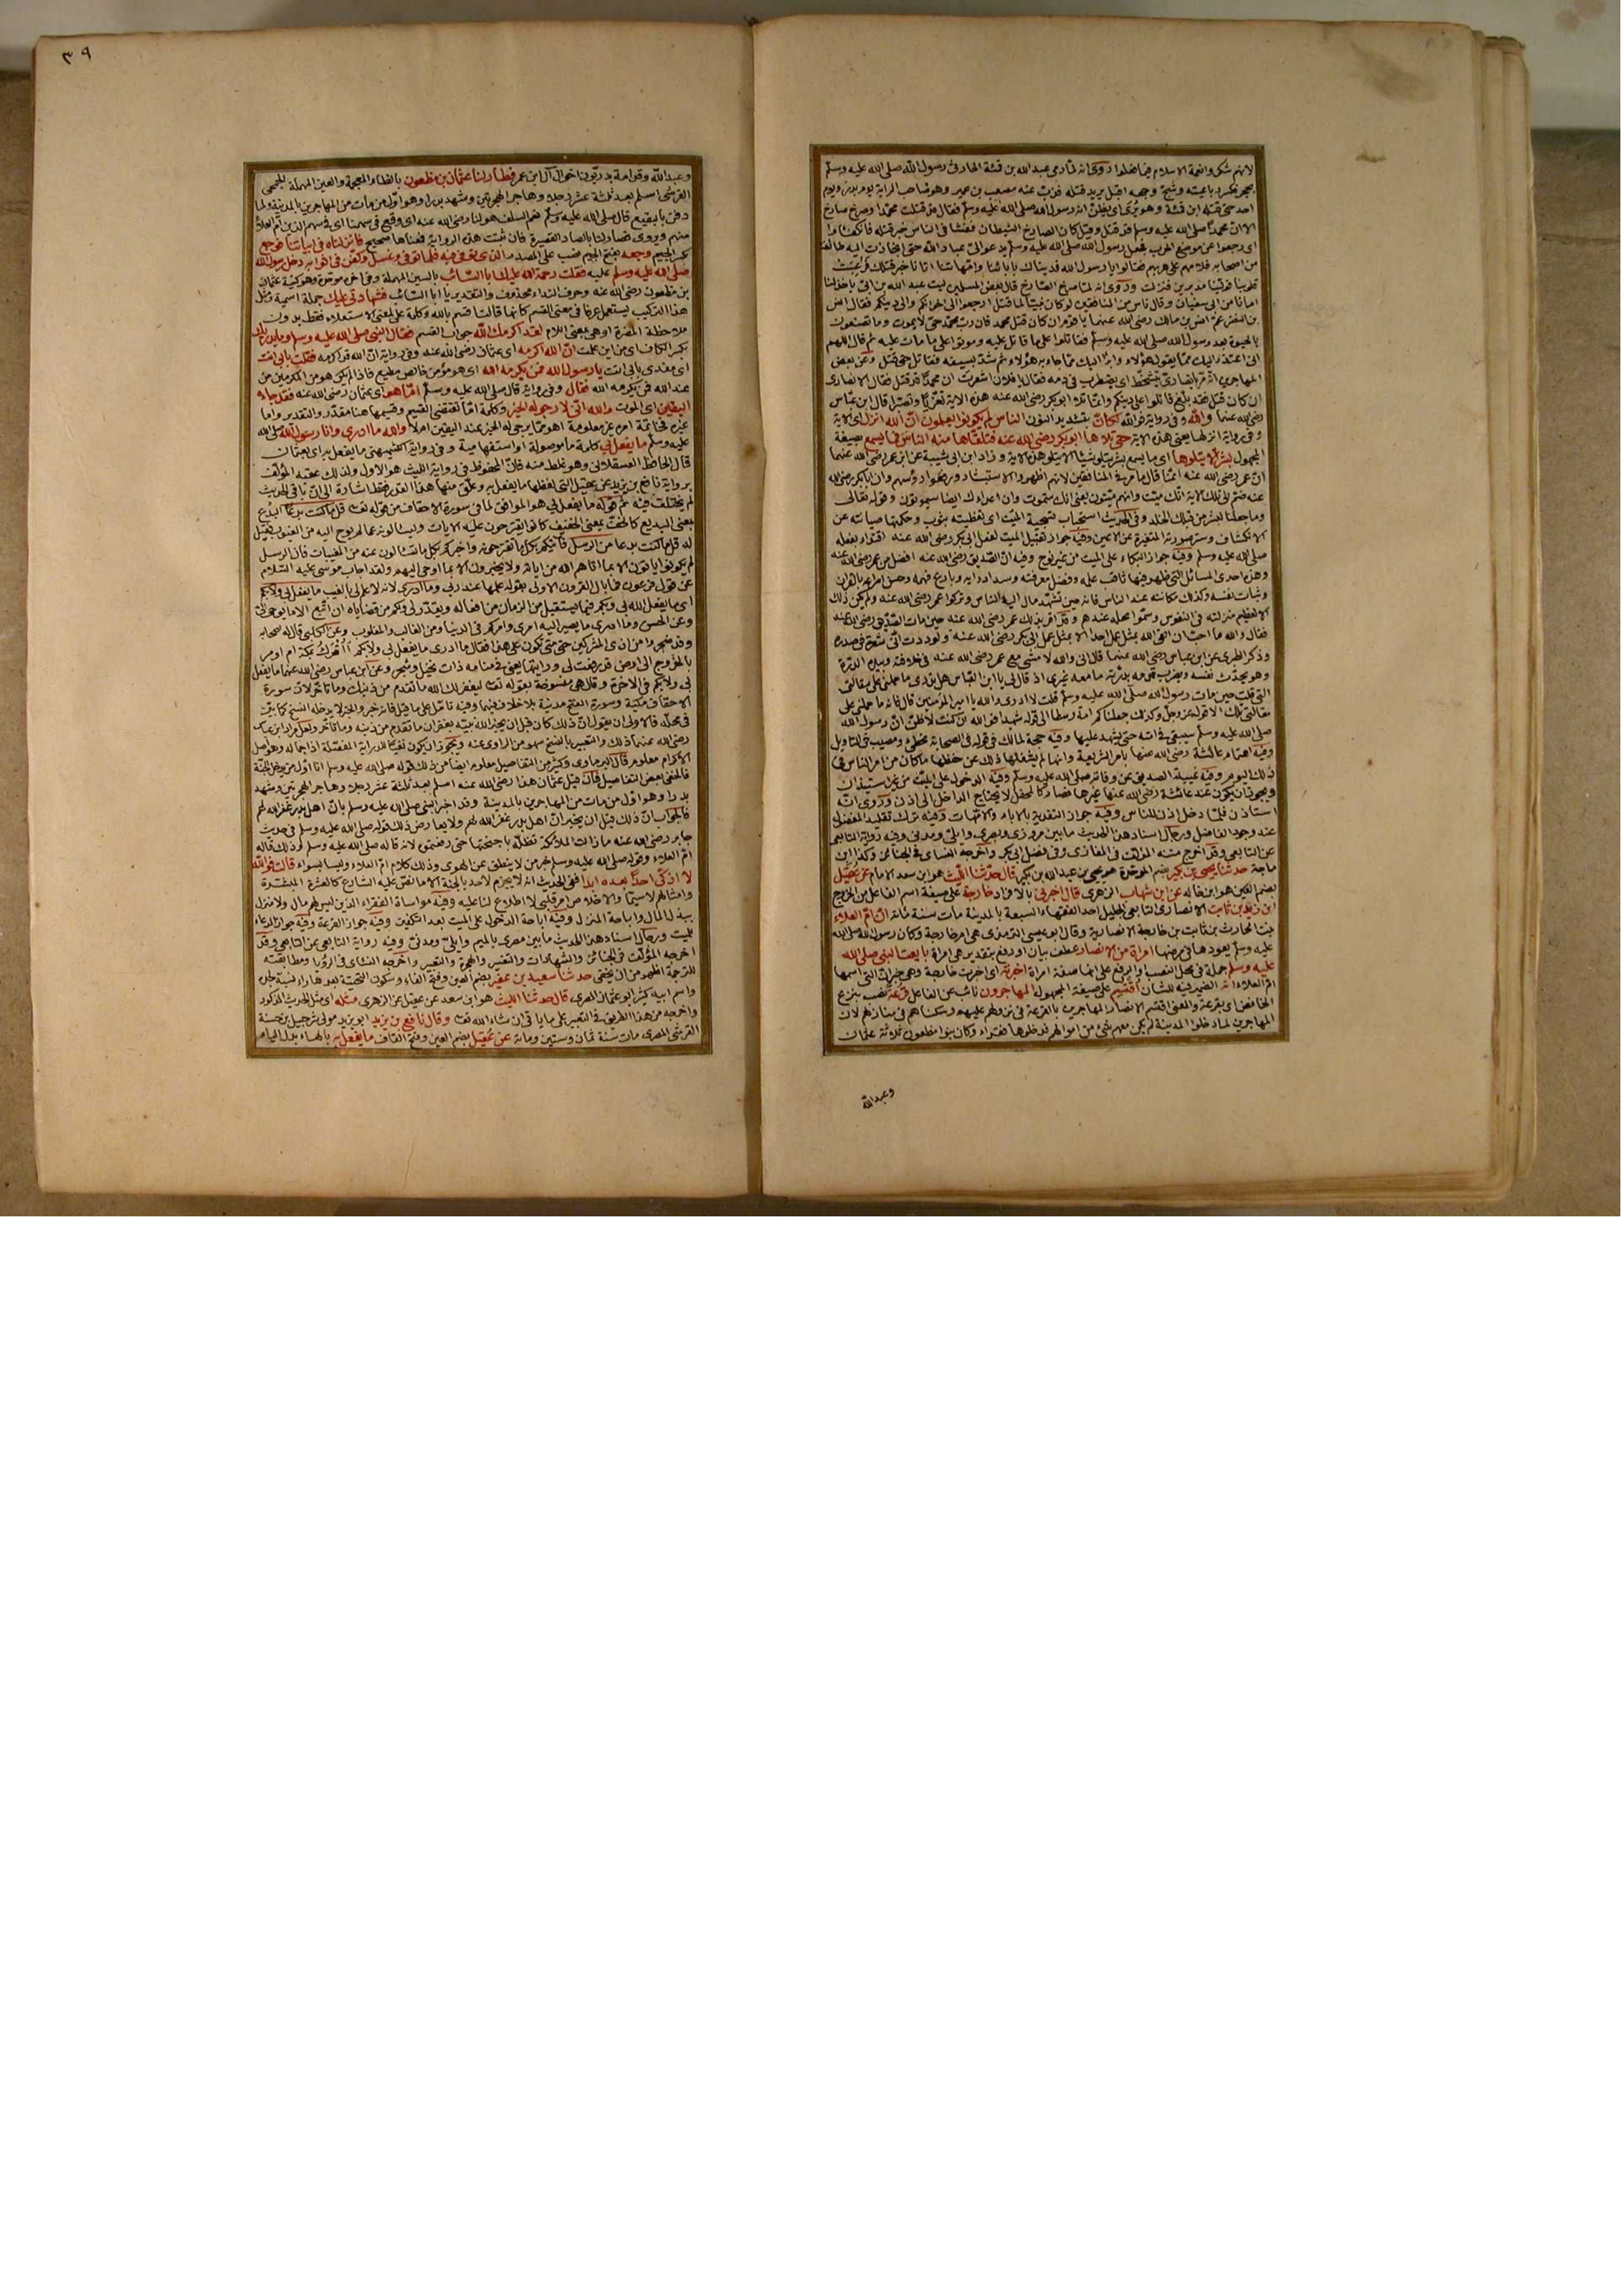 لانهم شكروا نعمة الاسلام فيما فعلوا وروى انه لما رمى عبد الله بن قمئة الحارثى رسول الله صلى الله عليه وسلم
بحجر فكسر رباعيته وشج وجهه اقبل يريد قتله فذب عنه مصعب بن عمير وهو صاحب الراية يوم بدر ويوم
احد حتى قتله ابن قمئة وهو يرى اى يظن انه رسول الله صلى الله عليه وسلم فقال قد قتلت محمدا وصرخ صارخ
الا ان محمدا صلى الله عليه وسلم قد قتل وقيل كان الصارخ الشيطان ففشا فى الناس خبر قتله فانكفئوا
اى رجعوا عن موضع الحرب فجعل رسول الله صلى الله عليه وسلم يدعو الى عباد الله حتى انحازت اليه طائفة
من اصحابه فلامهم على هربهم فقالوا يا رسول الله فديناك بابائنا وامهاتنا اتانا خبر قتلك فرعبت
قلوبنا فولينا مدبرين فنزلت وروى انه لما صرخ الصارخ قال بعض المسلمين ليت عبد الله بن ابى ياخذ لنا
امانا من ابى سفيان وقال ناس من المنافقين لو كان نبيا لما قتل ارجعوا الى اخوانكم والى دينكم فقال انس
بن النضر عم انس بن مالك رضى الله عنهما يا قوم ان كان قتل محمد فان رب محمد حى لا يموت وما تصنعون
بالحيوة بعد رسول الله صلى الله عليه وسلم فقاتلوا على ما قاتل عليه وموتوا على ما مات عليه ثم قال اللهم
انى اعتذر اليك مما يقول هؤلاء وابرأ اليك مما جاء به هؤلاء ثم شد بسيفه فقاتل حتى قتل وعن بعض
المهاجرين انه مر بانصارى يتشحط اى يضطرب فى دمه فقال يا فلان اشعرت ان محمدا قد قتل فقال الانصارى
ان كان قتل فقد بلغ فقاتلوا على دينكم وانما تلا ابو بكر رضى الله عنه هذه الاية تعزيا وتصبرا قال ابن عباس
رضى الله عنهما والله وفى رواية فوالله لكأن بتشديد النون الناس لم يكونوا يعلمون ان الله انزل اى الاية
وفى رواية انزلها يعنى هذه الاية حتى تلاها ابو بكر رضى الله عنه فتلقاها منه الناس فما يسمع بصيغة
المجهول بشر الا يتلوها اى ما يسمع بشر يتلو شيئا الا يتلو هذه الاية وزاد ابن ابى شيبة عن ابن عمر رضى الله عنهما
ان عمر رضى الله عنه انما قال ما مر فى المنافقين لانهم اظهروا الاستبشار ورفعوا رؤسهم وان ابا بكر رضى الله
عنه ضم الى تلك الاية انك ميت وانهم ميتون يعنى انك ستموت وان اعداءك ايضا سيموتون وقوله تعالى
وما جعلنا لبشر من قبلك الخلد وفى الحديث استحباب تسجية الميت اى تغطيته بثوب وحكمتها صيانته عن
الانكشاف وستر صورته المتغيرة عن الاعين وفيه جواز تقبيل الميت لفعل ابى بكر رضى الله عنه اقتداء بفعله
صلى الله عليه وسلم وفيه جواز البكاء على الميت من غير نوح وفيه ان الصديق رضى الله عنه افضل من عمر رضى الله عنه
وهذه احدى المسائل التى ظهر فيها ثاقب علمه وفضل معرفته وسداد رايه وبارع فهمه وحسن اسراعه بالقران
وثبات نفسه وكذلك مكانته عند الناس فانه حين تشهد مال اليه الناس وتركوا عمر رضى الله عنه ولم يكن ذلك
الا لعظيم منزلته فى النفوس وسمو محله عندهم وقد اقر بذلك عمر رضى الله عنه حين مات الصديق رضى الله عنه
فقال والله ما احب ان القى الله بمثل عمل احد الا بمثل عمل ابى بكر رضى الله عنه ولوددت انى شعرة فى صدره
وذكر الطبرى عن ابن عباس رضى الله عنهما قال انى والله لامشى مع عمر رضى الله عنه فى خلافته وبيده الدرة
وهو يحدث نفسه ويضرب قدمه بدرته ما معه غيرى اذ قال لى يا ابن العباس هل تدرى ما حملنى على مقالتى
التى قلت حين مات رسول الله صلى الله عليه وسلم قلت لا ادرى والله يا امير المؤمنين قال فانه ما حملنى على
مقالتى تلك الا قوله عز وجل وكذلك جعلناكم امة وسطا الى قوله شهيدا فوالله ان كنت لاظن ان رسول الله
صلى الله عليه وسلم سيبقى فى امته حتى يشهد عليها وفيه حجة لمالك فى قوله فى الصحابة مخطئ ومصيب فى التاويل
وفيه اهتمام عائشة رضى الله عنها بامر الشريعة وانها لم يشغلها ذلك عن حفظها ما كان من امر الناس فى
ذلك اليوم وفيه غيبة الصديق عن وفاته صلى الله عليه وسلم وفيه الدخول على الميت من غير استيذان
ويجوز ان يكون عند عائشة رضى الله عنها غيرها فصار كالمحفل لا يحتاج الداخل الى اذن وروى انه
استاذن فلما دخل اذن للناس وفيه جواز التفدية بالاباء والامهات وفيه ترك تقليد المفضول
عند وجود الفاضل ورجال اسناد هذا الحديث ما بين مروزى وبصرى وايلى ومدنى وفيه رواية التابعى
عن التابعى وقد اخرج متنه المؤلف فى المغازى وفى فضل ابى بكر واخرجه النسائى فى الجنائز وكذا ابن
ماجة حدثنا يحيى بن بكير بضم الموحدة هو يحيى بن عبد الله بن بكير قال حدثنا الليث هو ابن سعد الامام عن عقيل
بضم العين هو ابن خالد عن ابن شهاب الزهرى قال اخبرنى بالافراد خارجة على صيغة اسم الفاعل من الخروج
ابن زيد بن ثابت الانصارى التابعى الجليل احد الفقهاء السبعة بالمدينة مات سنة مائة ان ام العلاء
بنت الحارث بن ثابت بن خارجة الانصارية وقال ابو عيسى الترمذى هى ام خارجة وكان رسول الله صلى الله
عليه وسلم يعودها فى مرضها امرأة من الانصار عطف بيان او رفع بتقدير هى امرأة بايعت النبى صلى الله
عليه وسلم جملة فى محل النصب او الرفع على انها صفة امرأة اخبرته اى اخبرت خارجة وهى خبر ان التى اسمها
ام العلاء انه الضمير فيه للشان اقتسم على صيغة المجهول المهاجرون نائب عن الفاعل قرعة نصب بنزع
الخافض اى بقرعة والمعنى اقتسم الانصار المهاجرين بالقرعة فى نزولهم عليهم وسكناهم فى منازلهم لان
المهاجرين لما دخلوا المدينة لم يكن معهم شئ من اموالهم فدخلوها فقراء وكان بنو مظعون ثلاثة عثمان
وعبد الله
٣٩
وعبد الله وقدامة بدريون اخوال ابن عمر فطار لنا عثمان بن مظعون بالظاء المعجمة والعين المهملة الجمحى
القرشى اسلم بعد ثلثة عشر رجلا وهاجر الهجرتين وشهد بدرا وهو اول من مات من المهاجرين بالمدينة ولما
دفن بالبقيع قال صلى الله عليه وسلم نعم السلف هو لنا رضى الله عنه اى وقع فى سهمنا اى فى سهم الذين ام العلاء
منهم ويروى فصار لنا بالصاد القصيرة فان ثبت هذه الرواية فمعناها صحيح فانزلناه فى ابياتنا فوجع
بكسر الجيم وجعه بفتح الجيم نصب على المصدر الذى توفى فيه فلما توفى وغسل وكفن فى اثوابه دخل رسول الله
صلى الله عليه وسلم عليه فقلت رحمة الله عليك ابا السائب بالسين المهملة وفى اخره موحدة وهو كنية عثمان
بن مظعون رضى الله عنه وحرف النداء محذوف والتقدير يا ابا السائب فشهادتى عليك جملة اسمية ومثل
هذا التركيب يستعمل عرفا فى معنى القسم كانها قالت اقسم بالله وكلمة على لمعنى الاستعلاء فقط بدون
ملاحظة المضرة او هى بمعنى اللام لقد اكرمك الله جواب القسم فقال النبى صلى الله عليه وسلم وما يدريك
بكسر الكاف اى من اين علمت ان الله اكرمه اى عثمان رضى الله عنه وفى رواية ان الله قد اكرمه فقلت بابى انت
اى مفدى بابى انت يا رسول الله فمن يكرمه الله اى هو مؤمن خالص مطيع فاذا لم يكن هو من المكرمين من
عند الله فمن يكرمه الله فقال وفى رواية قال صلى الله عليه وسلم اما هو اى عثمان رضى الله عنه فقد جاءه
اليقين اى الموت والله انى لارجو له الخير وكلمة اما تقتضى القسيم وقسيمها هنا مقدر والتقدير واما
غيره فخاتمة امره غير معلومة اهو مما يرجى له الخير عند اليقين ام لا والله ما ادرى وانا رسول الله صلى الله
عليه وسلم ما يفعل بى كلمة ما موصولة او استفهامية وفى رواية الكشميهنى ما يفعل به اى بعثمان
قال الحافظ العسقلانى وهو غلط منه فان المحفوظ فى رواية الليث هو الاول ولذلك عقبه المؤلف
برواية نافع بن يزيد عن عقيل التى لفظها ما يفعل به وعلق منها هذا القدر فقط اشارة الى ان باقى الحديث
لم يختلف فيه ثم قوله ما يفعل بى هو الموافق لما فى سورة الاحقاف من قوله تعالى قل ما كنت بدعا البدع
بمعنى البديع كالخف بمعنى الخفيف كانوا يقترحون عليه الايات ويسألونه عما لم يوح اليه من الغيوب فقيل
له قل ما كنت بدعا من الرسل فآتيكم بكل ما تقترحونه واخبركم بكل ما تسألون عنه من المغيبات فان الرسل
لم يكونوا ياتون الا بما اتاهم الله من اياته ولا يخبرون الا بما اوحى اليهم ولقد اجاب موسى عليه السلام
عن قول فرعون فما بال القرون الاولى بقوله علمها عند ربى وما ادرى لانه لا علم لى بالغيب ما يفعل بى ولا بكم
اى ما يفعل الله بى وبكم فيما يستقبل من الزمان من افعاله ويقدر لى ولكم من قضاياه ان اتبع الا ما يوحى الى
وعن الحسن وما ادرى ما يصير اليه امرى وامركم فى الدنيا ومن الغالب والمغلوب وعن الكلبى قال له اصحابه
وقد ضجروا من اذى المشركين حتى متى نكون على هذا فقال ما ادرى ما يفعل بى ولا بكم أاترك بمكة ام اومر
بالخروج الى ارض قد رفعت لى ورايتها يعنى فى منامه ذات نخيل وشجر وعن ابن عباس رضى الله عنهما ما يفعل
بى ولا بكم فى الاخرة وقال هى منسوخة بقوله تعالى ليغفر لك الله ما تقدم من ذنبك وما تاخر لان سورة
الاحقاف مكية وسورة الفتح مدنية بلا خلاف فيهما وفيه تامل على ما قيل فانه خبر والخبر لا يدخله النسخ كما بين
فى محله فالاولى ان يقول ان ذلك كان قبل ان يخبر الله نبيه بغفران ما تقدم من ذنبه وما تاخر ولعل مراد ابن عباس
رضى الله عنهما ذلك والتعبير بالنسخ سهو من الراوى عنه ويجوز ان يكون نفيا للدراية المفصلة اذ اجماله وهو اصل
الاكرام معلوم قال البرماوى وكثير من التفاصيل معلوم ايضا من ذلك قوله صلى الله عليه وسلم انا اول من يدخل الجنة
فالمنفى بعض التفاصيل فان قيل عثمان هذا رضى الله عنه اسلم بعد ثلثة عشر رجلا وهاجر الهجرتين وشهد
بدرا وهو اول من مات من المهاجرين بالمدينة وقد اخبر النبى صلى الله عليه وسلم بان اهل بدر غفر الله لهم
فالجواب ان ذلك قبل ان يخبر ان اهل بدر غفر الله لهم ولا يعارض ذلك قوله صلى الله عليه وسلم فى حديث
جابر رضى الله عنه ما زالت الملائكة تظله باجنحتها حتى رفعتموه لانه قاله صلى الله عليه وسلم وذلك قاله
ام العلاء وقوله صلى الله عليه وسلم خبر من لا ينطق عن الهوى وذلك كلام ام العلاء وليسا بسواء قالت فوالله
لا ازكى احدا بعده ابدا ففى الحديث انه لا يجزم لاحد بالجنة الا ما نص عليه الشارع كالعشرة المبشرة
وامثالهم لا سيما والاخلاص امر قلبى لا اطلاع لنا عليه وفيه مواساة الفقراء الذين ليس لهم مال ولا منزل
ببذل المال واباحة المنزل وفيه اباحة الدخول على الميت بعد التكفين وفيه جواز القرعة وفيه جواز الدعاء
للميت ورجال اسناد هذا الحديث ما بين مصرى بالميم وايلى ومدنى وفيه رواية التابعى عن التابعى وقد
اخرجه المؤلف فى الجنائز والشهادات والتفسير والهجرة والتعبير واخرجه النسائى فى الرؤيا ومطابقته
للترجمة اظهر من ان يخفى حدثنا سعيد بن عفير بضم العين وفتح الفاء وسكون التحتية بعدها راء نسبة لجده
واسم ابيه كثير ابو عثمان المصرى قال حدثنا الليث هو ابن سعد عن عقيل عن الزهرى مثله اى مثل الحديث المذكور
واخرجه من هذا الطريق فى التعبير على ما ياتى ان شاء الله تعالى وقال نافع بن يزيد ابو يزيد مولى شرحبيل بن حسنة
القرشى المصرى مات سنة ثمان وستين ومائة عن عقيل بضم العين وفتح القاف ما يفعل به بالهاء بدل الياء